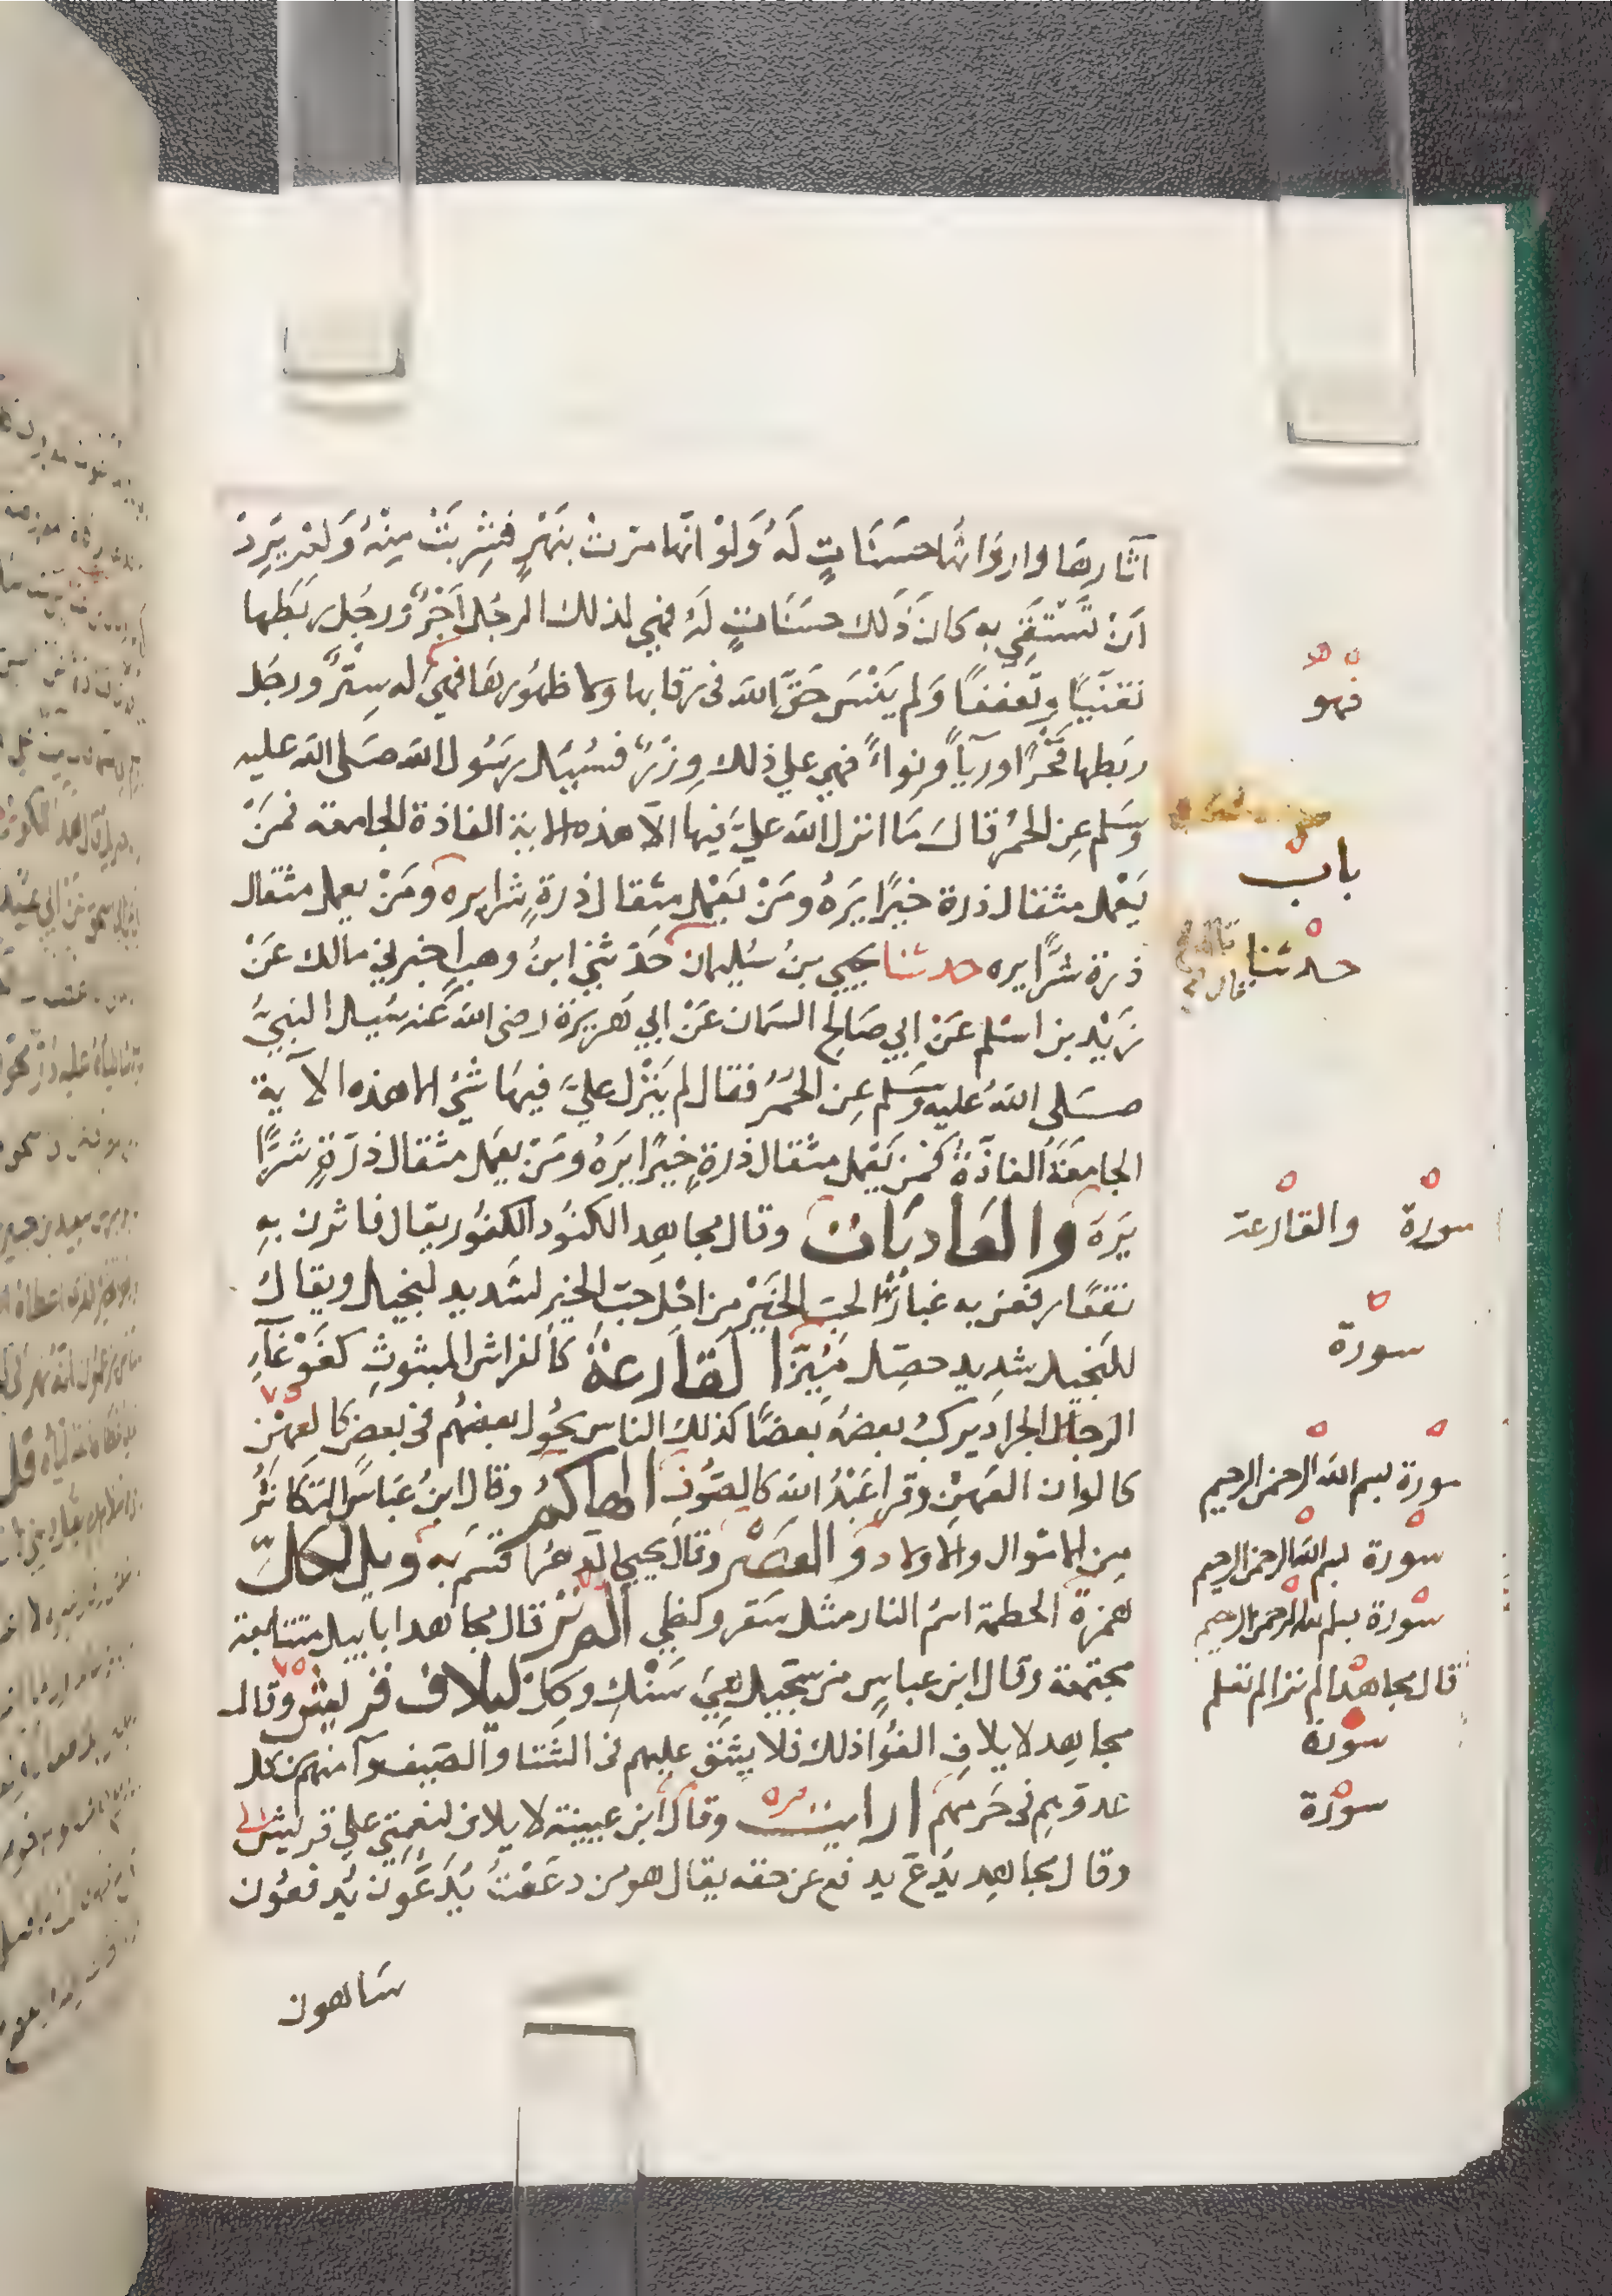 آثارها واروَاثها حَسَنَاتٍ لَهُ وَلَوْ انّها مرّت بنَهَرٍ فشِرِبَتْ مِنْهُ وَلم يَرِدْ
اَن تَسْتَقِي به كان ذَلك حسَنَاتٍ لَهُ فهي لذلك الرجُل اَجْرٌ ورجُل ربَطها
تغَنّيًا وتعَففًا وَلم يَنْسَ حَقّ الله في رقابها ولا ظهُورهَا فهيَ له سِتْرٌ ورجُل
ربَطها فَخْرًا ورِيآءً ونِواءً فهي على ذلك وِزرٌ فسُئِل رسُول الله صَلى الله عليه
وسَلم عِن الحُمُر قالَ مَا انزل الله عليَّ فيها الّا هذه الاية الفاذة الجامعة فمَنْ
يَعْمل مثقال ذرة خيرًا يَرَهُ ومَنْ يَعْمل مثقال ذرةٍ شرا يره ومَنْ يعمل مثقال
ذرة شرًّا يره حدثنا يحيي بنُ سُليمان حَدّثني ابنُ وهبٍ اخبرني مالك عَنْ
زَيْد بن اسْلم عَنْ ابي صَالح السمان عَنْ ابي هُريرَة رضى الله عَنه سُيل النبيُّ
صَلى اللهُ عليه وسَلم عِن الحُمُر فقال لم يَنْزل عليَّ فيهَا شيْ الا هذه الآية
الجامعَةُ الفاذّةُ فمن يَعْمل مثقال ذرةٍ خيْرًا يَرَهُ ومَنْ يعمَل مثقال ذرّةٍ شرًّا
يَرَهُ والعَاديَات وقال مجاهِد الكنُود الكفُور يقال فاثرن بهِ
نقعًا رفعن به غبارًا لحبّ الخيْر من اجْل حبّ الخير لشَديد لبخيل ويقال
للبَخيل شدِيد حصِّل مُيِّزَ القَارعَةُ كالفراش المبثوثِ كغَوْغآءِ
الجراد يركبُ بعضهُ بعضًا كذلك الناس يجُول بعضُهم في بعض كالعِهْن
كالوان العِهْنِ وقرا عَبْدُ الله كالصُوف الهاكم وقال ابنُ عَباسٍ التكاثُرُ
مِن الامْوال والاولاد والعَصْر وقال يحيي الدهرُ اقسَم به ويل لكلّ
هُمزة الحطمة اسمُ النار مثل سَقر ولظي الم تر قال مجاهد ابابيل متتابعة
مجتمعَة وقال ابن عباسٍ من سِجّيل هيَ سَنْك وكِل لِيلاف قريش وقال
مجاهِد لايلافِ الفُوا ذلك فلا يشُق علِيهم في الشتا والصّيف وآمنهم من كل
عدوّهِم في حَرمهم ارايت وقال ابن عيينة لايلاف لنعمتِي على قريش
وقال مجاهِد يَدُعّ يدفع عن حقه يقال هو من دعَعْتُ يُدَعُّون يُدفعُون
ساهون
فهو
باب
حدثنا
سورة والقارعة
سورة
سورة بسم الله الرحمن الرحيم
سورة بسم الله الرحمن الرحيم
سورة بسم الله الرحمن الرحيم
قال مجاهد الم تر الم تعلم
سورة
سورة